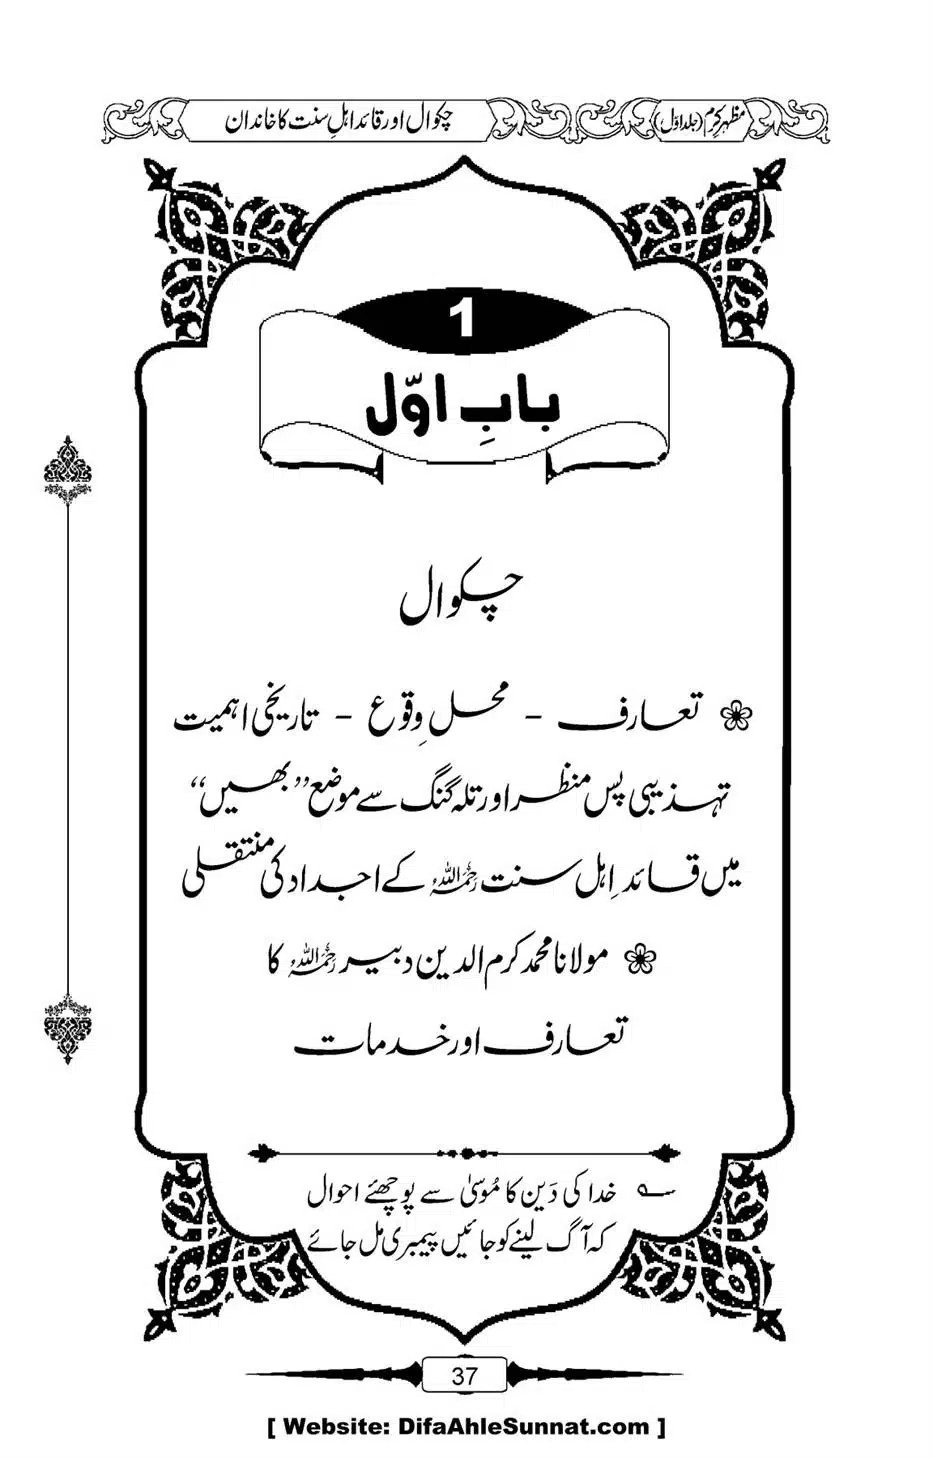 مظہرِ کرم (جلد اوّل)
چکوال اور قائد اہلِ سنت کا خاندان
1
بابِ اوّل
چکوال
تعارف - محلِ وقوع - تاریخی اہمیت
تہذیبی پس منظر اور تلہ گنگ سے موضع ”بھیں“
میں قائدِ اہل سنت رحمہ اللہ کے اجداد کی منتقلی
مولانا محمد کرم الدین دبیر رحمہ اللہ کا
تعارف اور خدمات
خدا کی دَین کا مُوسیٰ سے پوچھئے احوال
کہ آگ لینے کو جائیں پیمبری مل جائے
37
[ Website: DifaAhleSunnat.com ]